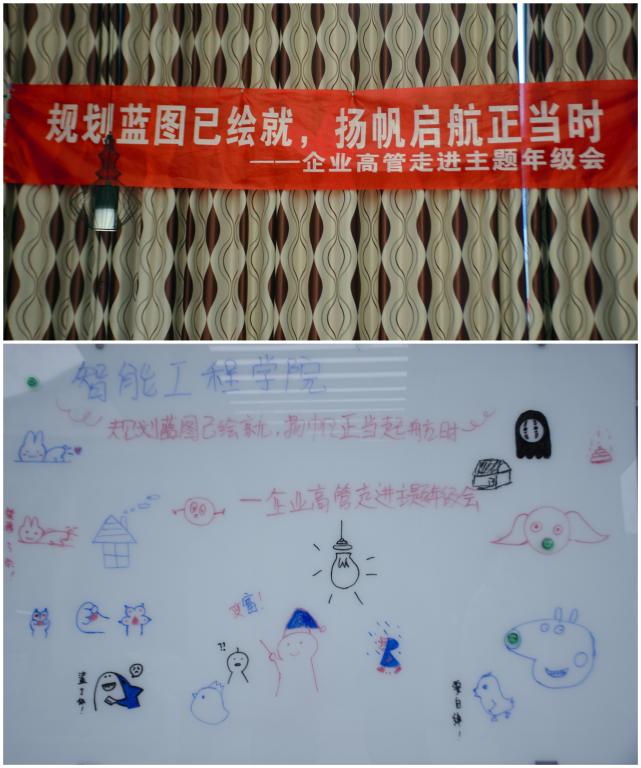 规划蓝图已绘就，扬帆启航正当时
——企业高管走进主题年级会
智能工程学院
规划蓝图已绘就,扬帆正当起航时
一企业高管走进主题年级会
变富!
??